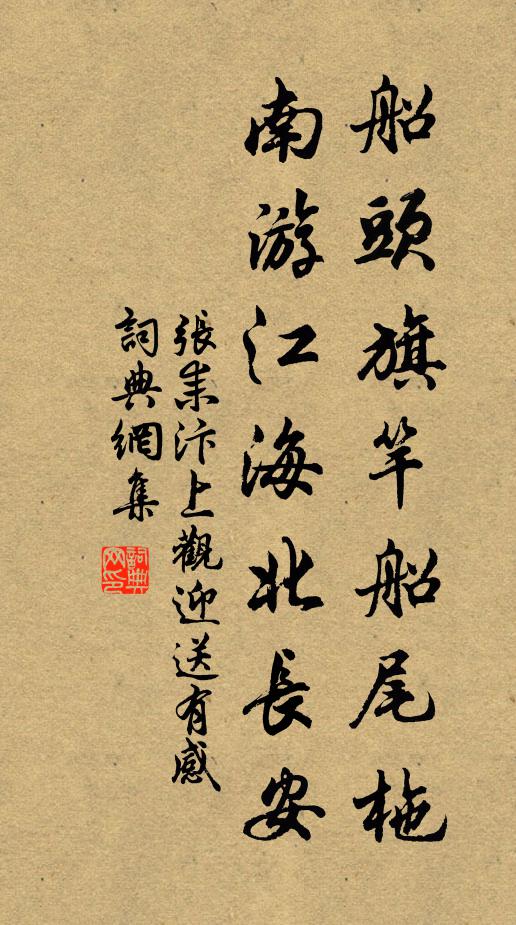 船頭旗竿船尾柂
南游江海北長安
張耒汴上觀迎送有感
詞典網集
詞典網印